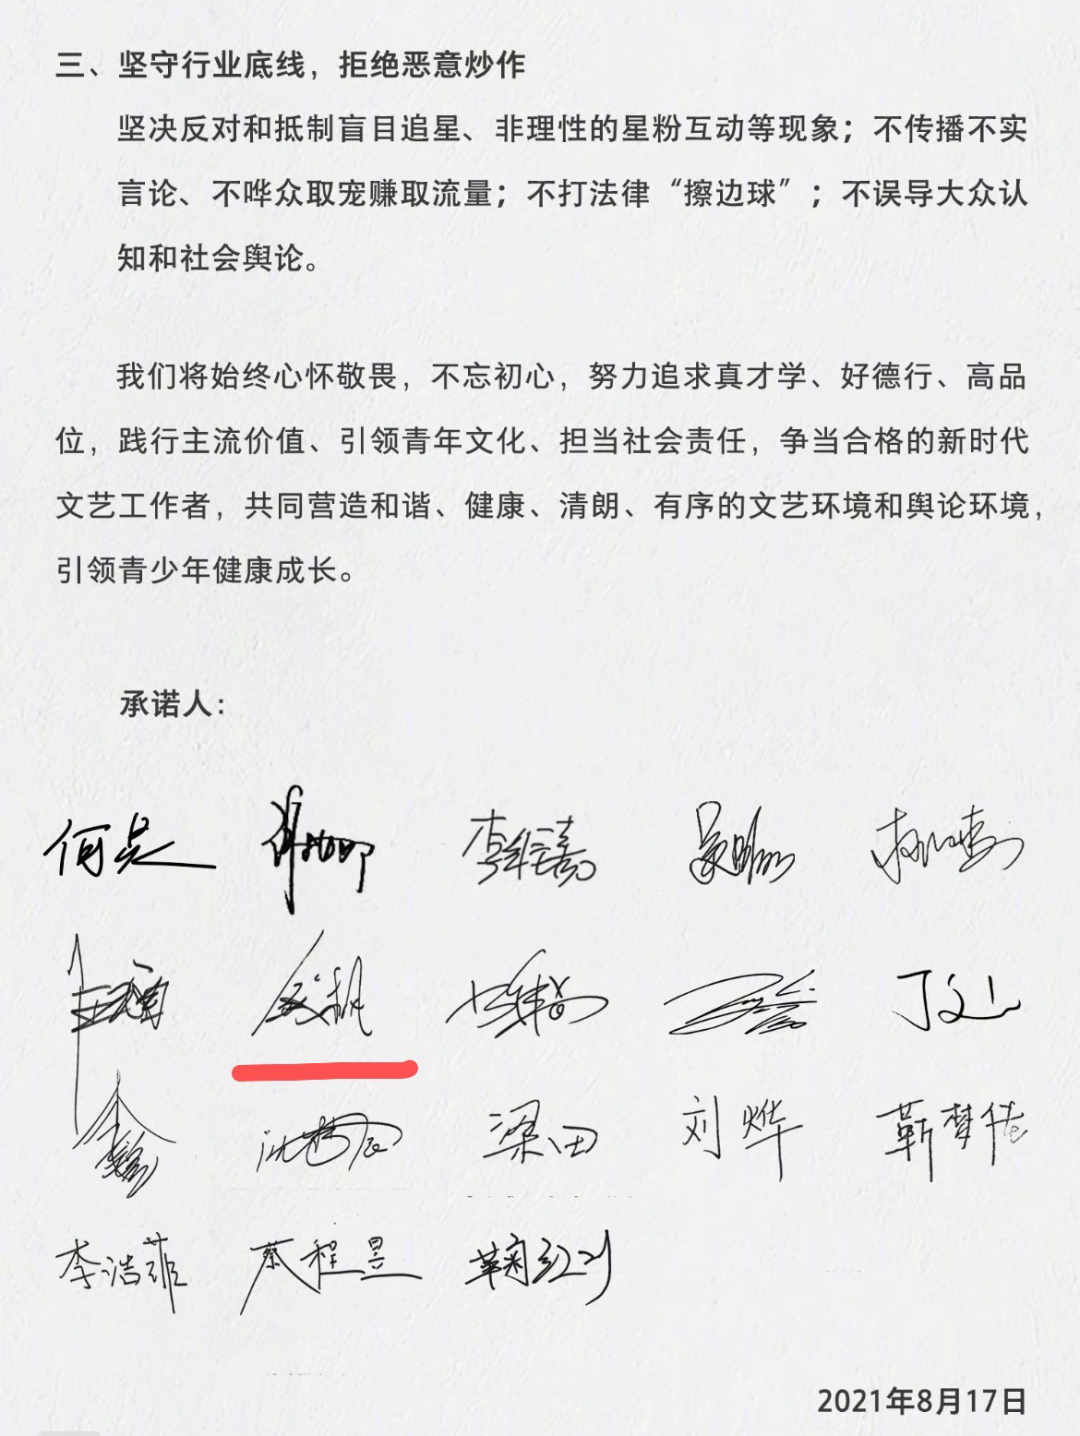 三、坚守行业底线，拒绝恶意炒作
坚决反对和抵制盲目追星、非理性的星粉互动等现象；不传播不实
言论、不哗众取宠赚取流量；不打法律“擦边球”；不误导大众认
知和社会舆论。
我们将始终心怀敬畏，不忘初心，努力追求真才学、好德行、高品
位，践行主流价值、引领青年文化、担当社会责任，争当合格的新时代
文艺工作者，共同营造和谐、健康、清朗、有序的文艺环境和舆论环境，
引领青少年健康成长。
承诺人：
何炅 李维嘉
丁文山
沈梦辰 梁田 刘烨 靳梦佳
李浩菲 蔡程昱
2021年8月17日